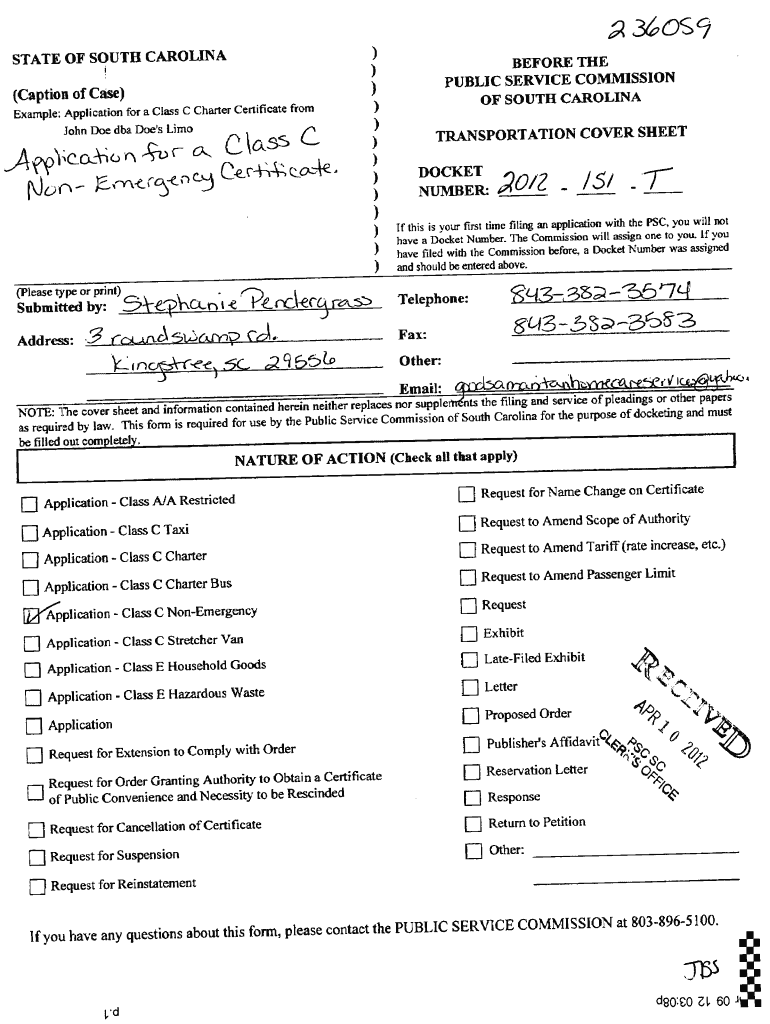 236059
STATE OF SOUTH CAROLINA
(Caption of Case)
Example: Application for a Class C Charter Certificate from
John Doe dba Doe's Limo
Application for a Class C
Non-Emergency Certificate.
BEFORE THE
PUBLIC SERVICE COMMISSION
OF SOUTH CAROLINA
TRANSPORTATION COVER SHEET
DOCKET
NUMBER: 2012 - 151 - T
If this is your first time filing an application with the PSC, you will not
have a Docket Number. The Commission will assign one to you. If you
have filed with the Commission before, a Docket Number was assigned
and should be entered above.
(Please type or print)
Submitted by: Stephanie Pendergrass
Address: 3 roundswamp rd.
Kingstree, SC 29556
Telephone: 843-382-3574
Fax: 843-382-3583
Other:
Email:
NOTE: The cover sheet and information contained herein neither replaces nor supplements the filing and service of pleadings or other papers
as required by law. This form is required for use by the Public Service Commission of South Carolina for the purpose of docketing and must
be filled out completely.
NATURE OF ACTION (Check all that apply)
Application - Class A/A Restricted
Application - Class C Taxi
Application - Class C Charter
Application - Class C Charter Bus
Application - Class C Non-Emergency
Application - Class C Stretcher Van
Application - Class E Household Goods
Application - Class E Hazardous Waste
Application
Request for Extension to Comply with Order
Request for Order Granting Authority to Obtain a Certificate
of Public Convenience and Necessity to be Rescinded
Request for Cancellation of Certificate
Request for Suspension
Request for Reinstatement
Request for Name Change on Certificate
Request to Amend Scope of Authority
Request to Amend Tariff (rate increase, etc.)
Request to Amend Passenger Limit
Request
Exhibit
Late-Filed Exhibit
Letter
Proposed Order
Publisher's Affidavit
Reservation Letter
Response
Return to Petition
Other:
RECEIVED
APR 10 2012
PSC SC
CLERK'S OFFICE
If you have any questions about this form, please contact the PUBLIC SERVICE COMMISSION at 803-896-5100.
JBS
09 12 03:08p
p.1